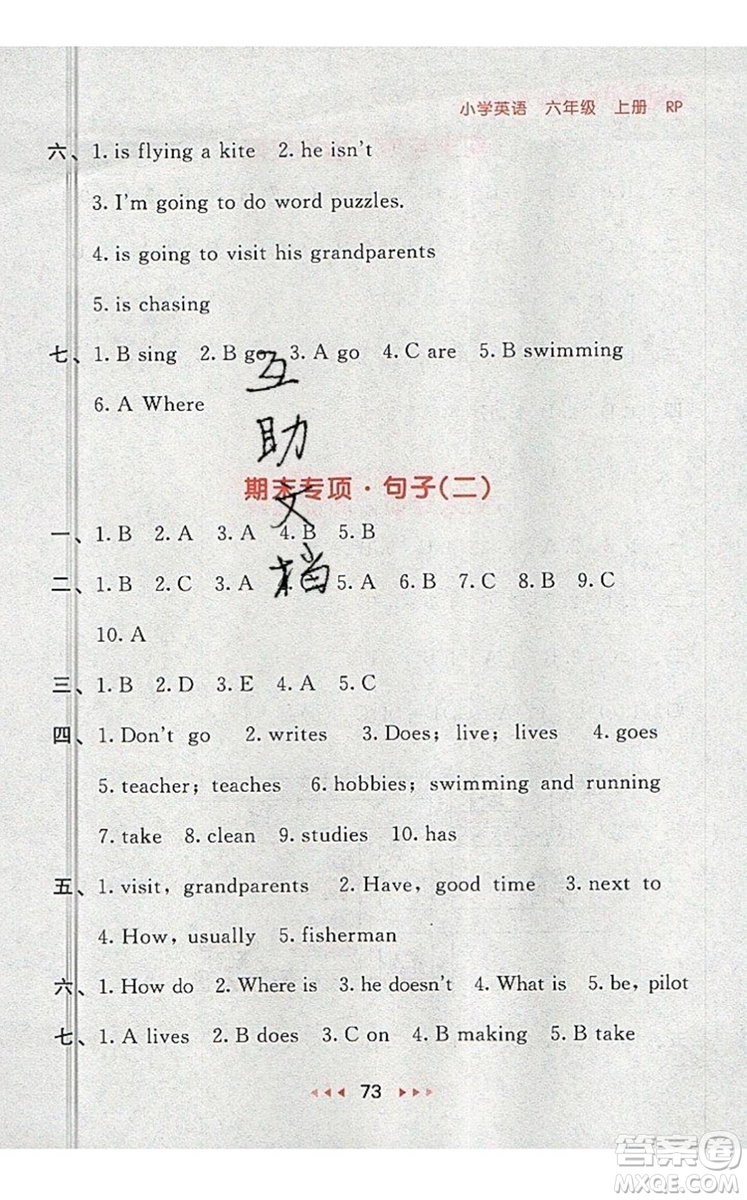 小学英语 六年级 上册 RP
六、1. is flying a kite 2. he isn't
3. I'm going to do word puzzles.
4. is going to visit his grandparents
5. is chasing
七、1. B sing 2. B go 3. A go 4. C are 5. B swimming
6. A Where
互助文档
期末专项·句子(二)
一、1. B 2. A 3. A 4. B 5. B
二、1. B 2. C 3. A 5. A 6. B 7. C 8. B 9. C
10. A
三、1. B 2. D 3. E 4. A 5. C
四、1. Don't go 2. writes 3. Does; live; lives 4. goes
5. teacher; teaches 6. hobbies; swimming and running
7. take 8. clean 9. studies 10. has
五、1. visit, grandparents 2. Have, good time 3. next to
4. How, usually 5. fisherman
六、1. How do 2. Where is 3. he doesn't 4. What is 5. be, pilot
七、1. A lives 2. B does 3. C on 4. B making 5. B take
73
答案圈
MXQE.COM